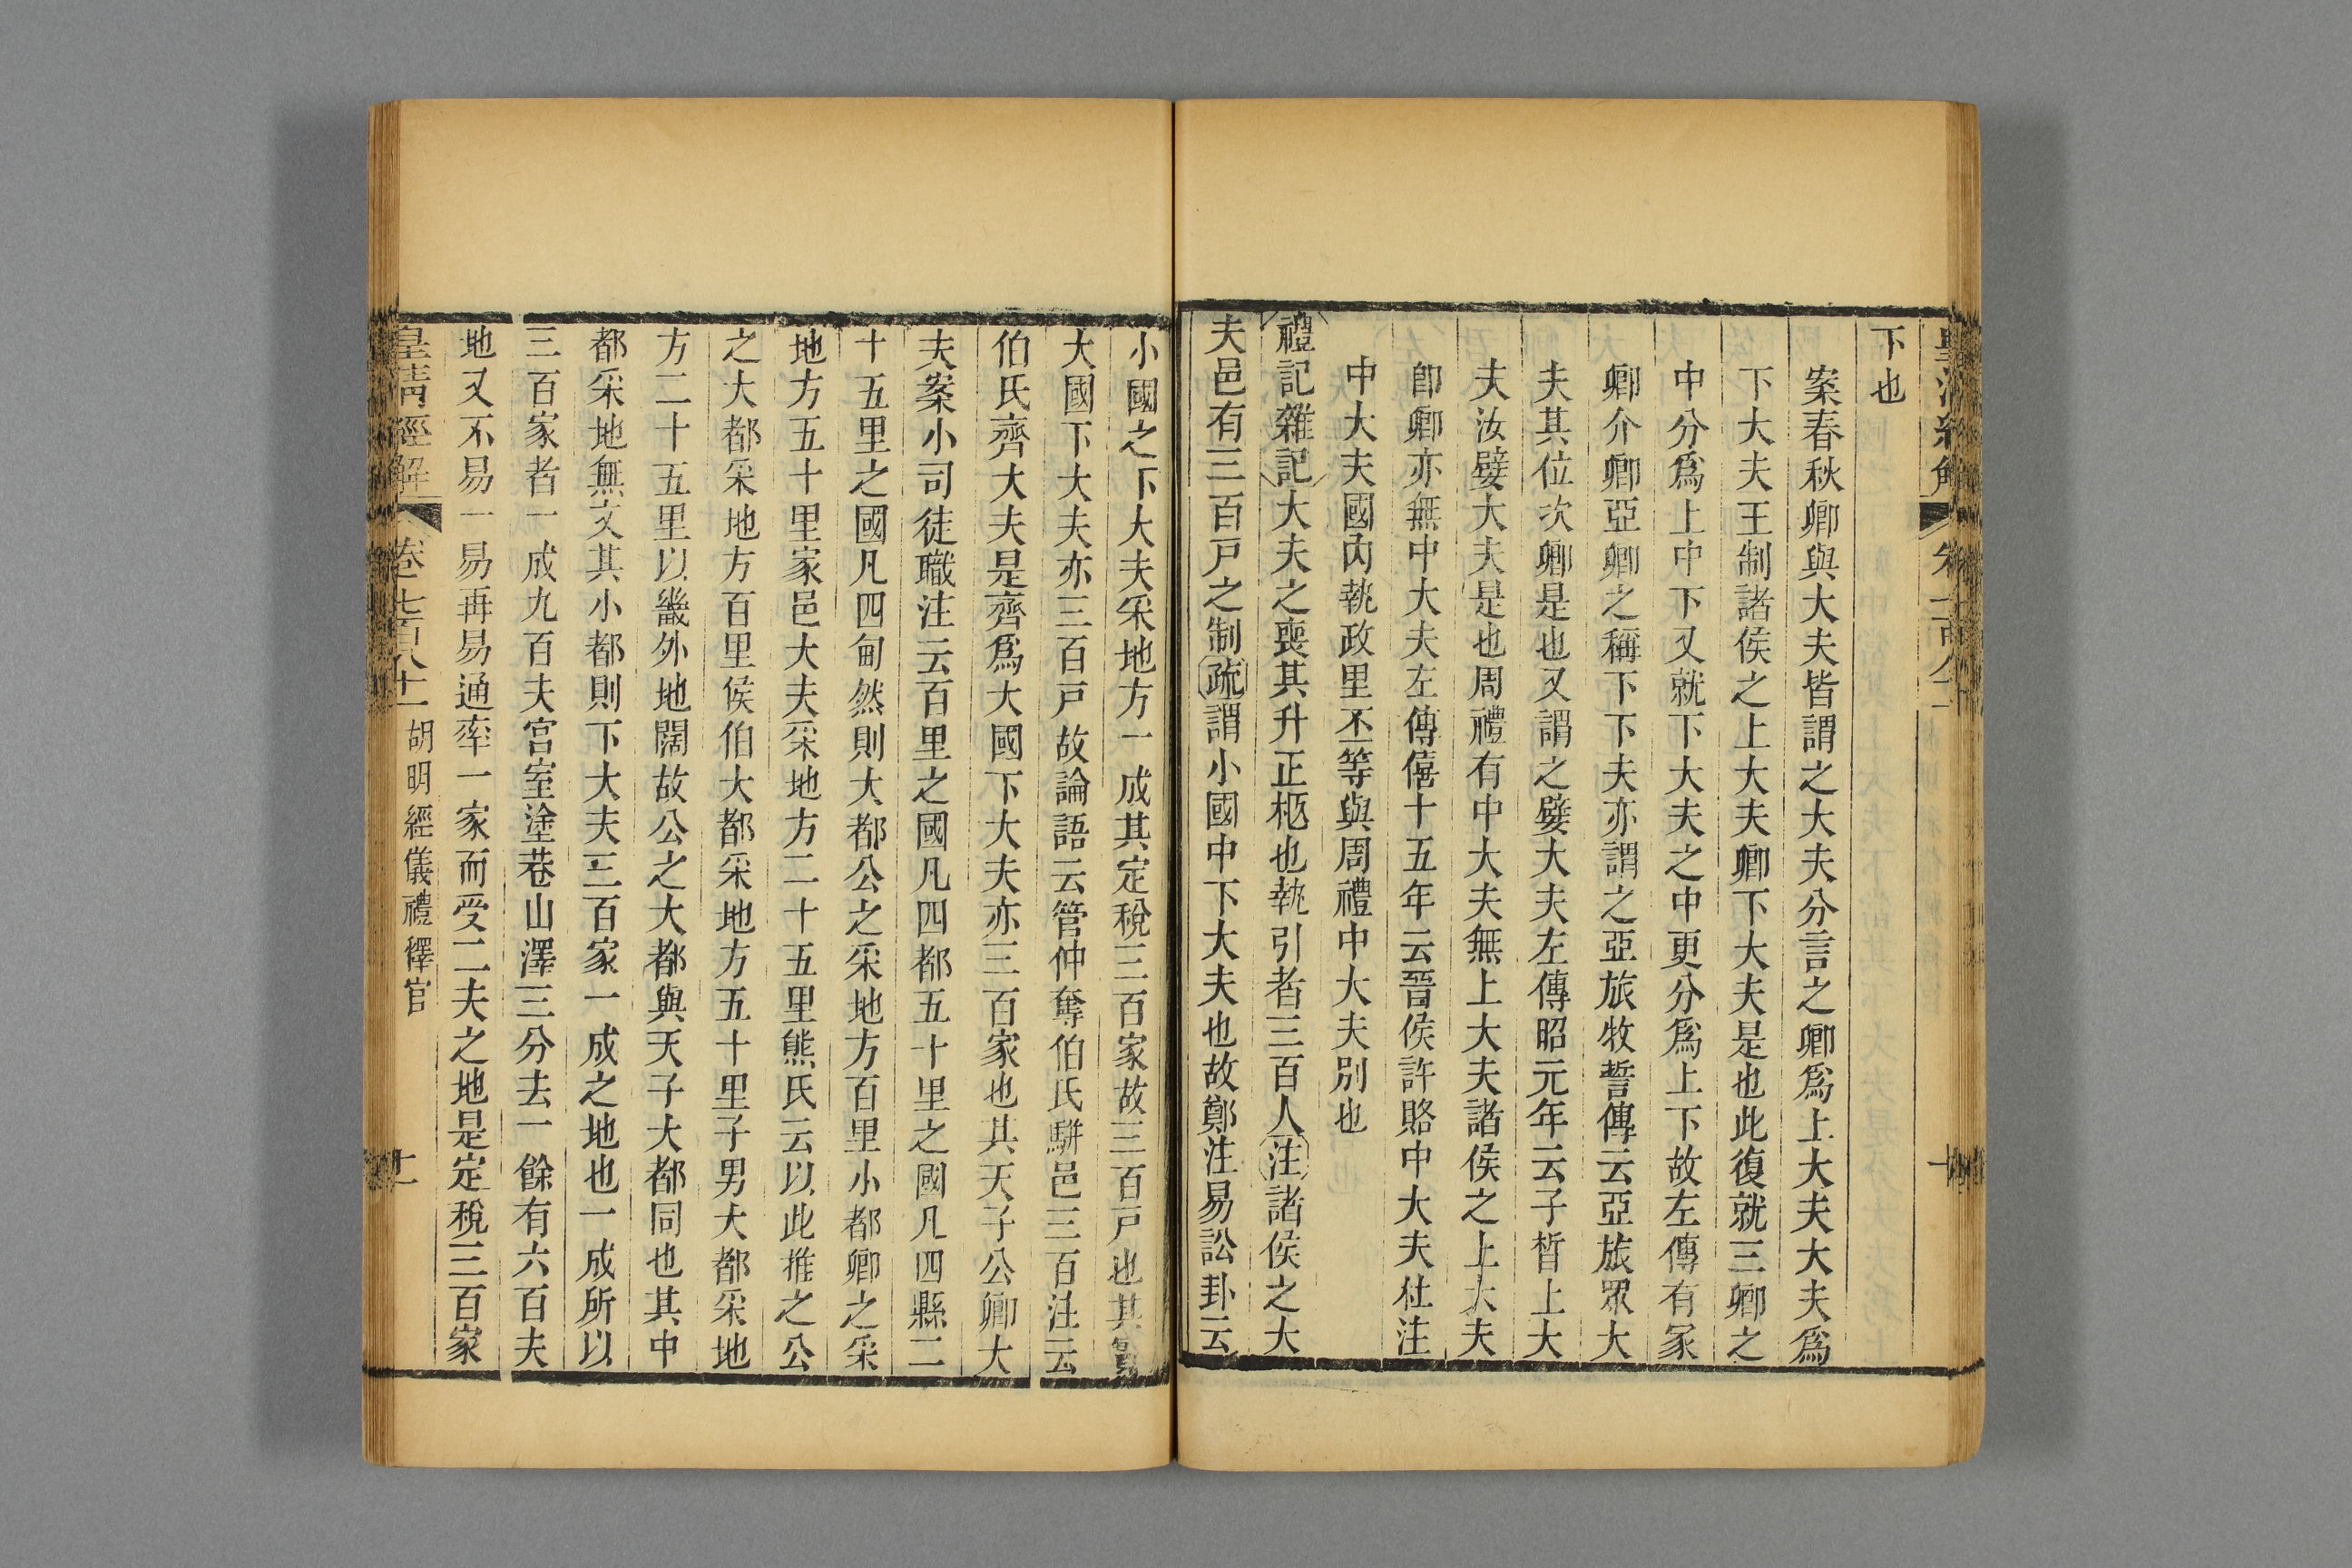 皇清經解 卷七百八十一 十
下也
案春秋卿與大夫皆謂之大夫分言之卿爲上大夫大夫爲
下大夫王制諸侯之上大夫卿下大夫是也此復就三卿之
中分爲上中下又就下大夫之中更分爲上下故左傳有冢
卿介卿亞卿之稱下下夫亦謂之亞旅牧誓傳云亞旅眾大
夫其位次卿是也又謂之嬖大夫左傳昭元年云子晳上大
夫汝嬖大夫是也周禮有中大夫無上大夫諸侯之上大夫
卽卿亦無中大夫左傳僖十五年云晉侯許賂中大夫杜注
中大夫國內執政里丕等與周禮中大夫別也
禮記雜記大夫之喪其升正柩也執引者三百人注諸侯之大
夫邑有三百戸之制疏謂小國中下大夫也故鄭注易訟卦云
小國之下大夫采地方一成其定稅三百家故三百戸也其實
大國下大夫亦三百戸故論語云管仲奪伯氏騈邑三百注云
伯氏齊大夫是齊爲大國下大夫亦三百家也其天子公卿大
夫案小司徒職注云百里之國凡四都五十里之國凡四縣二
十五里之國凡四甸然則大都公之采地方百里小都卿之采
地方五十里家邑大夫采地方二十五里熊氏云以此推之公
之大都采地方百里侯伯大都采地方五十里子男大都采地
方二十五里以畿外地闊故公之大都與天子大都同也其中
都采地無文其小都則下大夫三百家一成之地也一成所以
三百家者一成九百夫宮室塗巷山澤三分去一餘有六百夫
地又不易一易再易通率一家而受二夫之地是定稅三百家
皇清經解 卷七百八十一 胡明經儀禮釋官 十一